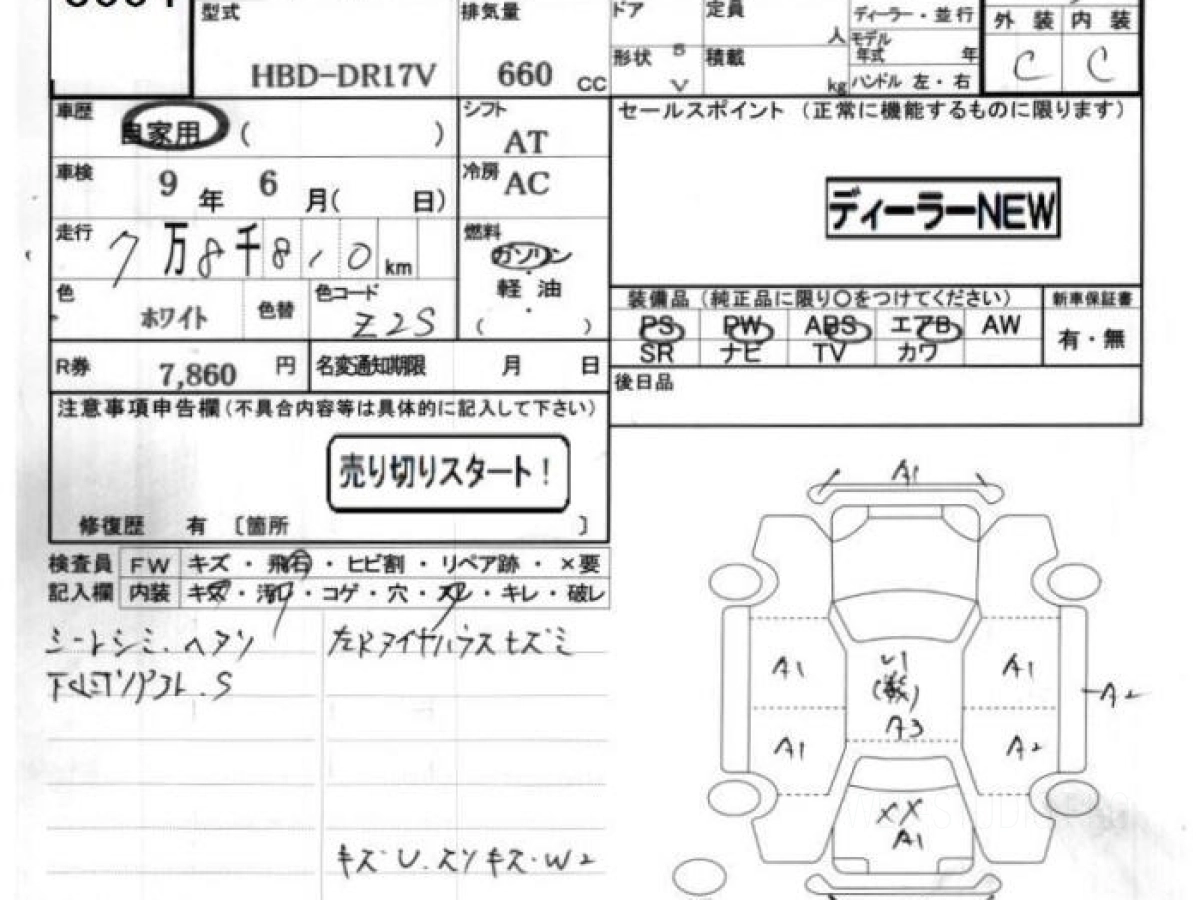 型式 HBD-DR17V
排気量 660 cc
ドア 定員 人
形状 5 V
積載 kg
ディーラー・並行
モデル年式 年
ハンドル 左・右
外装 内装
C C
車歴 自家用 ( )
シフト AT
車検 9 年 6 月( 日)
冷房 AC
走行 7 万 8 千 8 1 0 km
燃料 ガソリン
軽 油
( )
色 ホワイト 色替
色コード Z2S
R券 7,860 円
名変通知期限 月 日
セールスポイント (正常に機能するものに限ります)
ディーラーNEW
装備品 (純正品に限り○をつけてください) 新車保証書
PS PW ABS エアB AW 有・無
SR ナビ TV カワ
後日品
注意事項申告欄(不具合内容等は具体的に記入して下さい)
売り切りスタート!
修復歴 有 〔箇所 〕
検査員 FW キズ ・ 飛石 ・ ヒビ割 ・ リペア跡 ・ ×要
記入欄 内装 キズ・汚レ・コゲ・穴・スレ・キレ・破レ
シートシミ、ヘタリ
左Rタイヤハウスヒズミ
S
キズ・U.スリキズ・W2
A1
A1 U1 A1
A2
A3
A1 A2
XX
A1